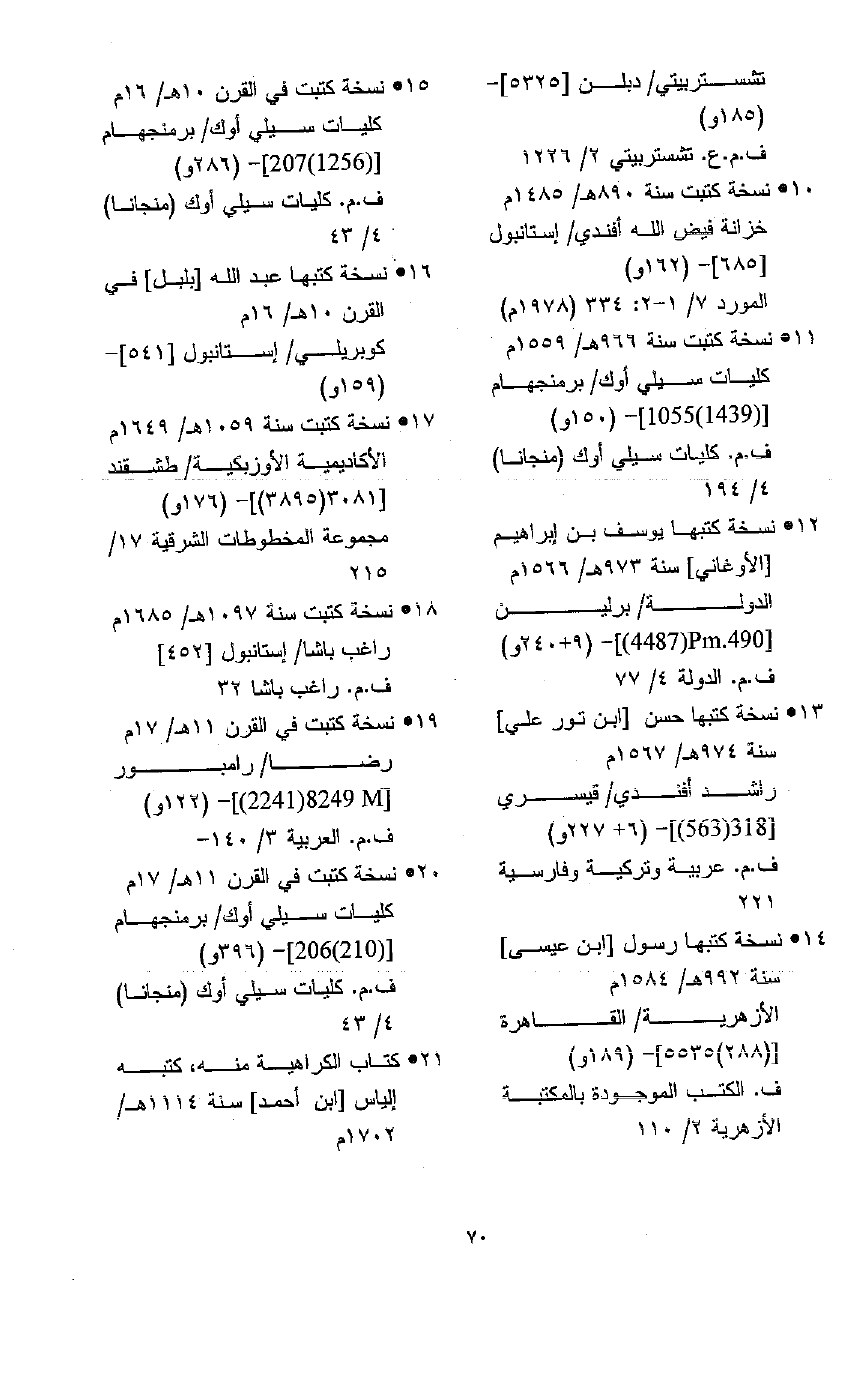 تشستربيتي/ دبلن [٥٣٢٥]-
(١٨٥و)
ف.م.ع. تشستربيتي ٢/ ١٢٢٦
١٠• نسخة كتبت سنة ٨٩٠هـ/ ١٤٨٥م
خزانة فيض الله أفندي/ إستانبول
[٦٨٥]- (١٦٢و)
المورد ٧/ ١-٢: ٣٣٤ (١٩٧٨م)
١١• نسخة كتبت سنة ٩٦٦هـ/ ١٥٥٩م
كليات سيلي أوك/ برمنجهام
[1055(1439)]- (١٥٠و)
ف.م. كليات سيلي أوك (منجانا)
٤/ ١٩٤
١٢• نسخة كتبها يوسف بن إبراهيم
[الأوغاني] سنة ٩٧٣هـ/ ١٥٦٦م
الدولة/ برلين
[(4487)Pm.490]- (٩+٢٤٠و)
ف.م. الدولة ٤/ ٧٧
١٣• نسخة كتبها حسن [ابن تور علي]
سنة ٩٧٤هـ/ ١٥٦٧م
راشد أفندي/ قيسري
[(563)318]- (٦+ ٢٢٧و)
ف.م. عربية وتركية وفارسية
٢٢١
١٤• نسخة كتبها رسول [ابن عيسى]
سنة ٩٩٢هـ/ ١٥٨٤م
الأزهرية/ القاهرة
[(٢٨٨)٥٥٣٥]- (١٨٩و)
ف. الكتب الموجودة بالمكتبة
الأزهرية ٢/ ١١٠
١٥• نسخة كتبت في القرن ١٠هـ/ ١٦م
كليات سيلي أوك/ برمنجهام
[207(1256)]- (٢٨٦و)
ف.م. كليات سيلي أوك (منجانا)
٤/ ٤٣
١٦• نسخة كتبها عبد الله [بلبل] في
القرن ١٠هـ/ ١٦م
كوبريلي/ إستانبول [٥٤١]-
(١٥٩و)
١٧• نسخة كتبت سنة ١٠٥٩هـ/ ١٦٤٩م
الأكاديمية الأوزبكية/ طشقند
[٣٠٨١(٣٨٩٥)]- (١٧٦و)
مجموعة المخطوطات الشرقية ١٧/
٢١٥
١٨• نسخة كتبت سنة ١٠٩٧هـ/ ١٦٨٥م
راغب باشا/ إستانبول [٤٥٢]
ف.م. راغب باشا ٣٢
١٩• نسخة كتبت في القرن ١١هـ/ ١٧م
رضا/ رامبور
[(2241)8249 M]- (١٢٢و)
ف.م. العربية ٣/ ١٤٠-
٢٠• نسخة كتبت في القرن ١١هـ/ ١٧م
كليات سيلي أوك/ برمنجهام
[206(210)]- (٣٩٦و)
ف.م. كليات سيلي أوك (منجانا)
٤/ ٤٣
٢١• كتاب الكراهية منه، كتبه
إلياس [ابن أحمد] سنة ١١١٤هـ/
١٧٠٢م
٧٠